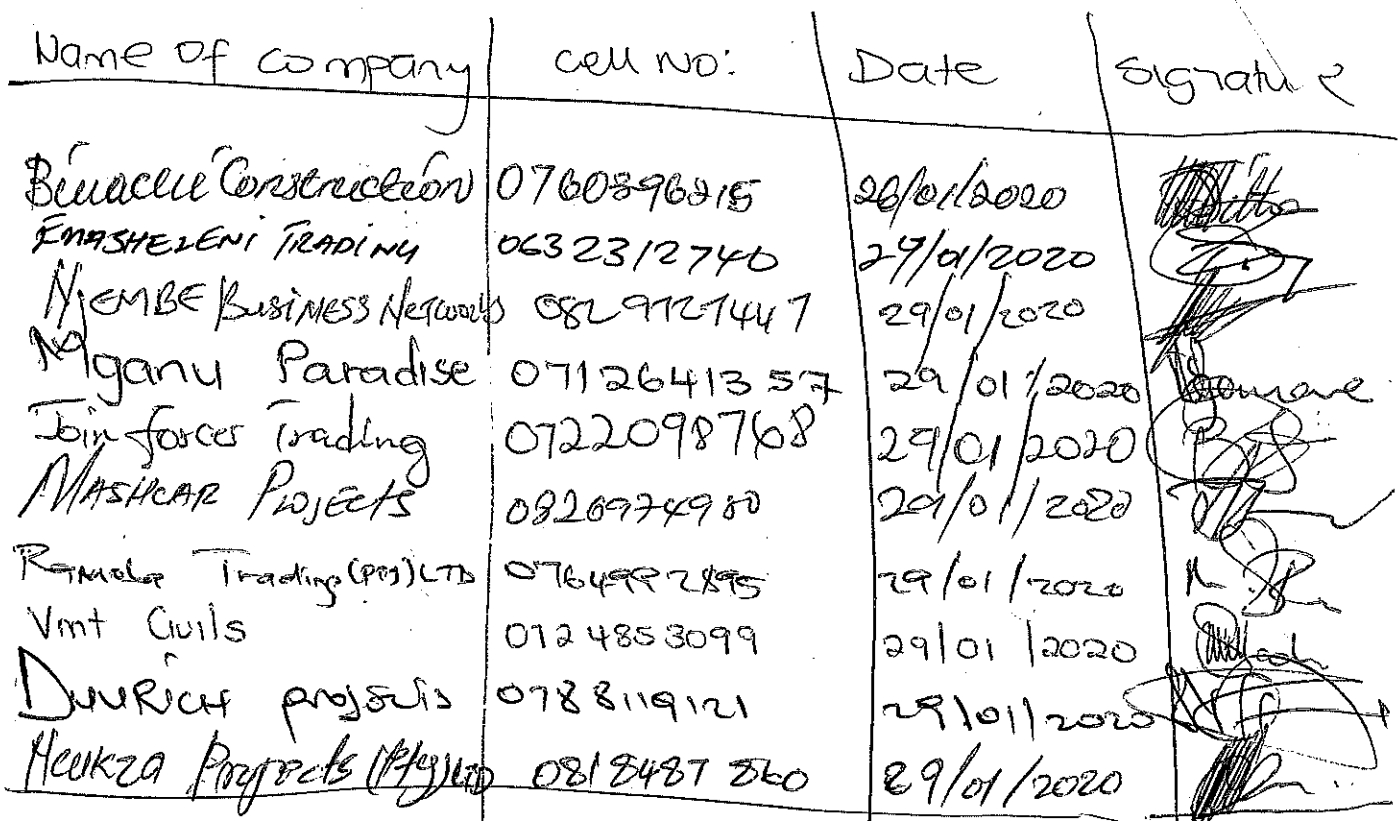 Name of company cell No: Date Signature
Construction 0760896215 28/01/2020
EMASHELENI TRADING 0632312740 29/01/2020
NJEMBE BUSINESS Networks 0829727447 29/01/2020
Mganu Paradise 0712641357 29/01/2020
Join forces Trading 0722098768 29/01/2020
MASHCAR PROJECTS 0826974980 29/01/2020
Trading (Pty) LTD 0764992895 29/01/2020
Vmt Civils 0724853099 29/01/2020
projects 0788119121 29/01/2020
Projects (Pty) LTD 0818487860 29/01/2020